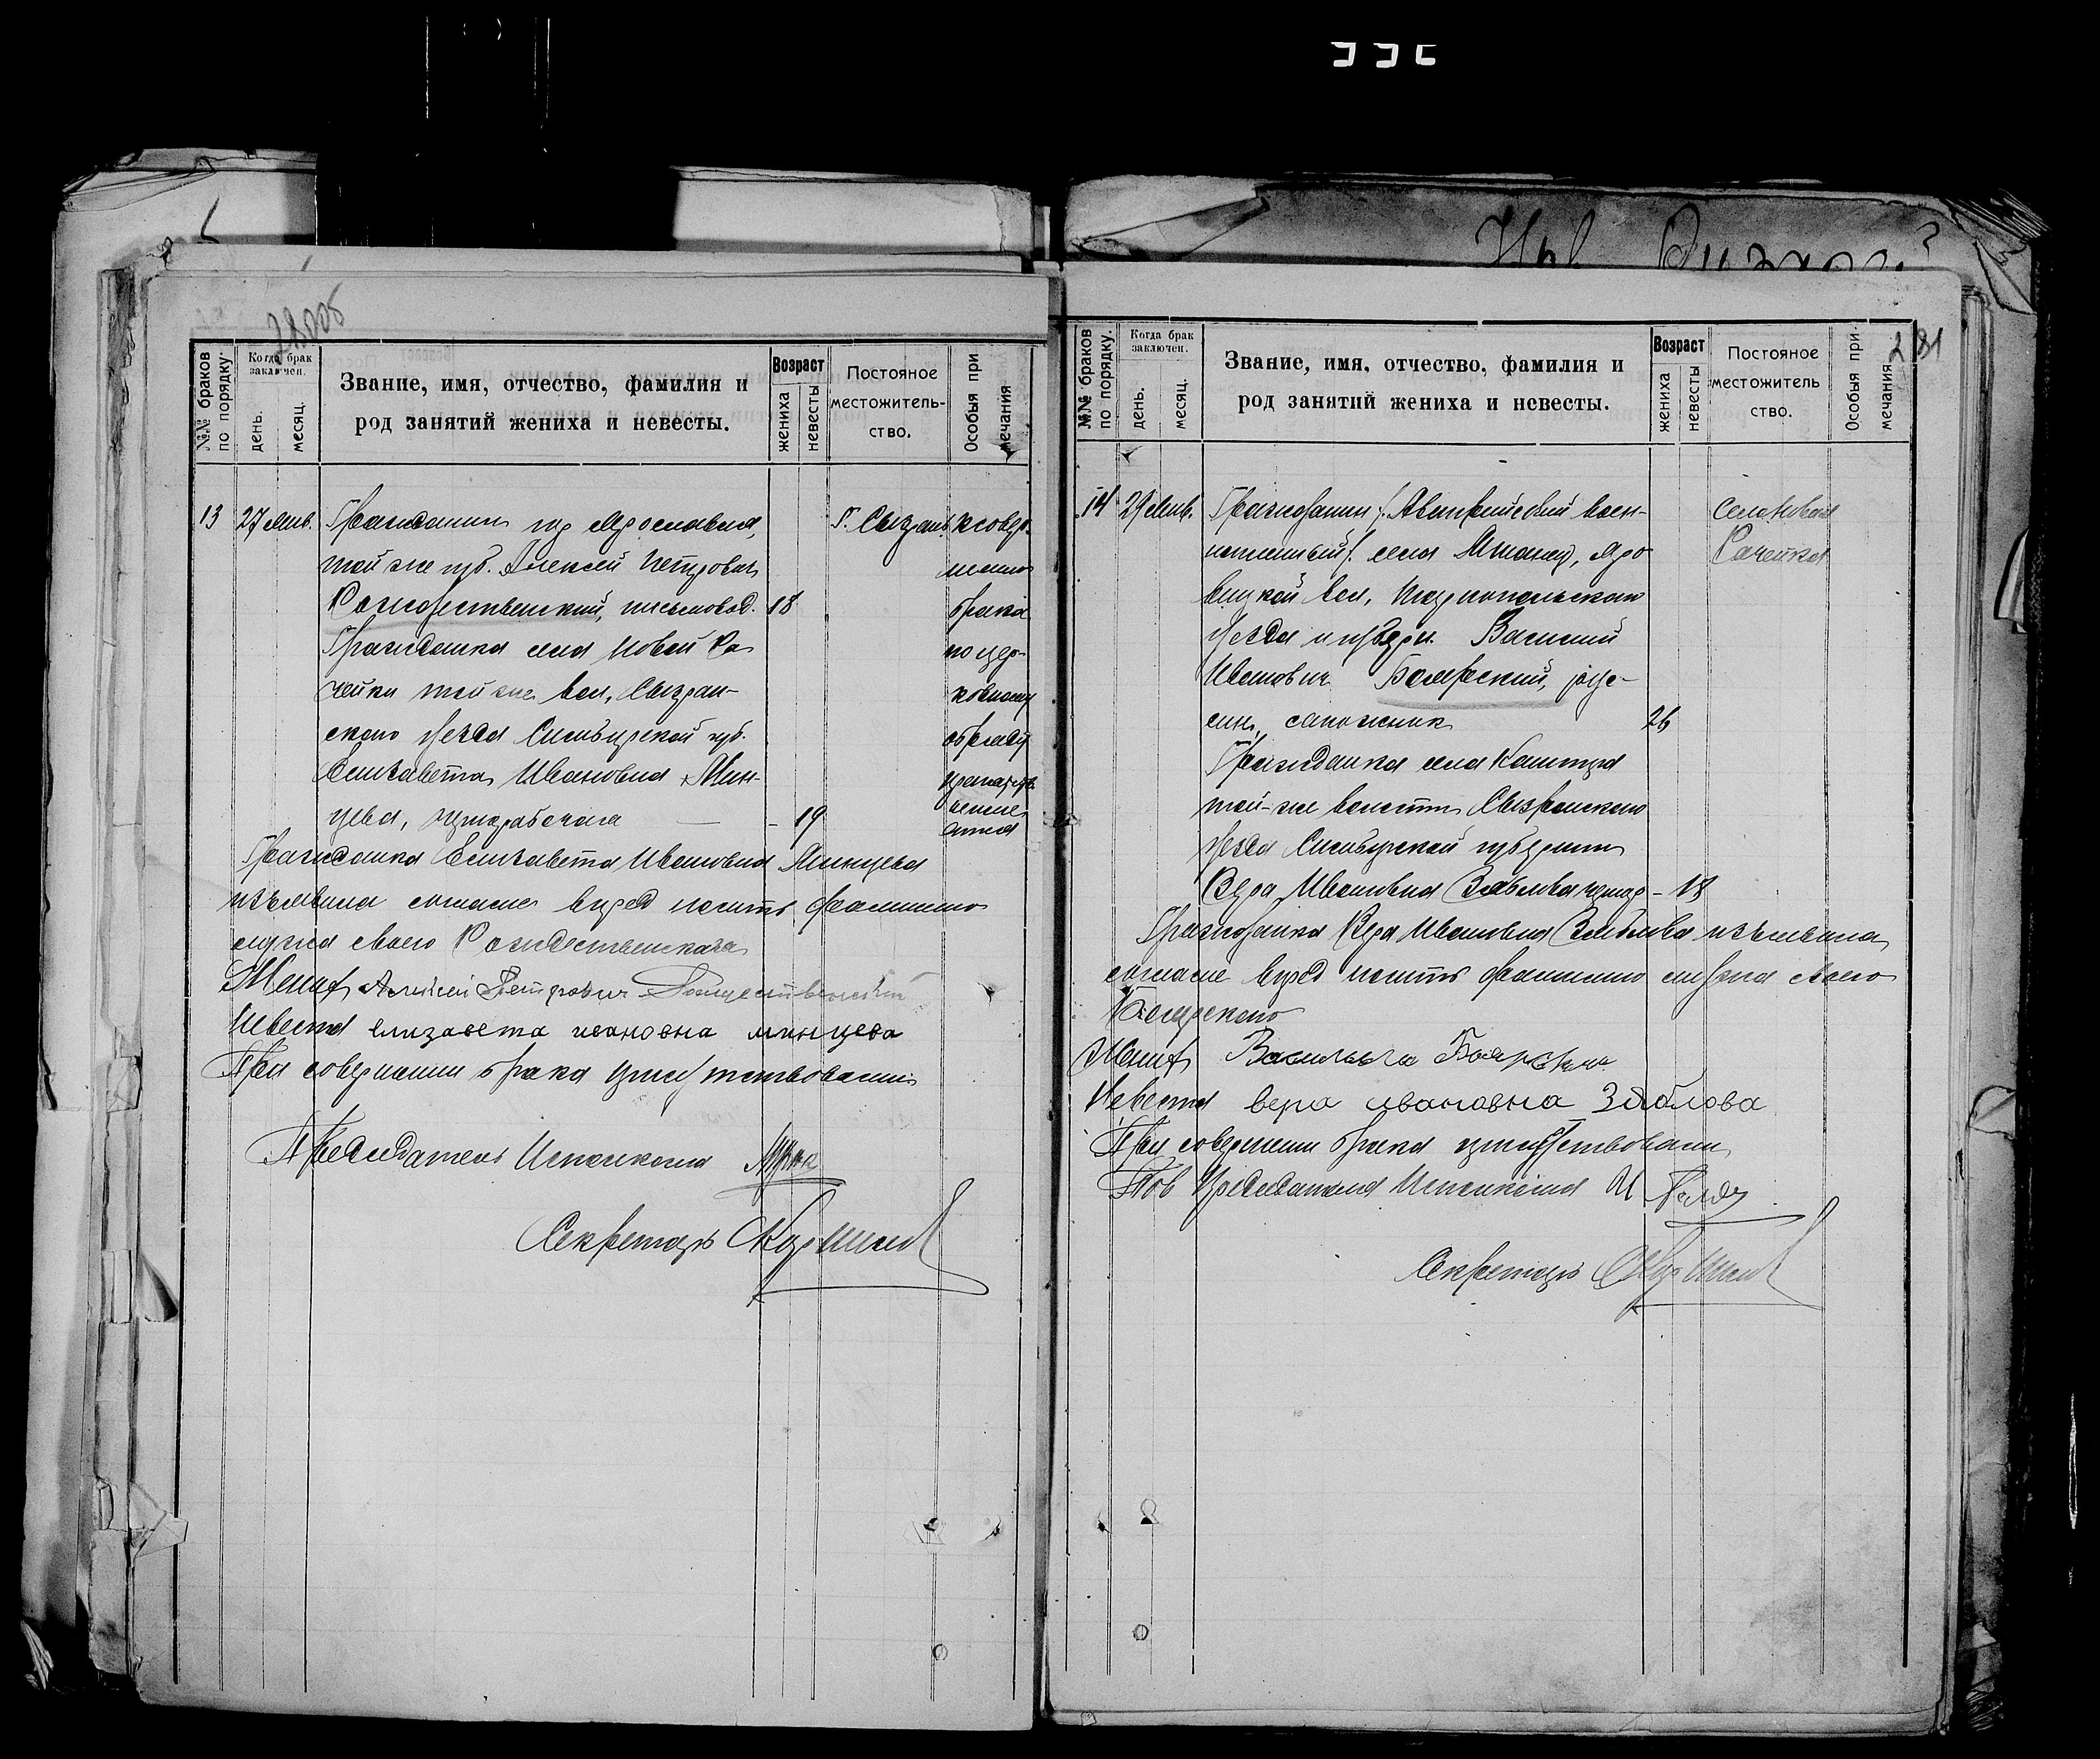 28005
№№ браков по порядку.
Когда брак заключен.
день.
месяц.
Звание, имя, отчество, фамилия и
род занятий жениха и невесты.
Возраст
жениха
невесты
Постояное
местожитель-
ство.
Особыя при
мечания
13 27 янв. Гражданин гор Ярославля, Г. Сызрань
той же губ. Алексей Петрович
Рождественский, письмовод. 18
Гражданка села Новой Ра
чейки той же вол, Сызран-
ского уезда Симбирской губ.
Елизавета Ивановна Мин-
цева, чернорабочая — - 19
К совер-
шению
брака
по цер-
ковному
обряду
Гражданка Елизавета Ивановна Минцева
изъявила согласие впред носить фамилию
мужа своего Рождественская
Жених Алексей Петрович Рождественский
Невеста елизавета ивановна минцева
При совершении брака присутствовали
Председатель Исполкома
Секретарь
281
№№ браков по порядку.
Когда брак заключен.
день.
месяц.
Звание, имя, отчество, фамилия и
род занятий жениха и невесты.
Возраст
жениха
невесты
Постояное
местожитель
ство.
Особыя при-
мечания.
14 29 янв. Гражданин /Австрийский воен- село Новая
нопленный/. села Рачейка
вицкой вол, Тарнопольского
уезда и губерн. Василий
Иванович Боярский, ру-
син, сапожник 26
Гражданка села Кашпира
той-же волости Сызранского
уезда Симбирской губернии
Вера Ивановна Зяблова - 18
Гражданка Вера Ивановна Зяблова изъявила
согласие впред носить фамилию мужа своего
Боярского
Жених
Невеста вера ивановна Зяблова
При совершении брака присутствовали
Тов Председателя Исполкома И
Секретарь